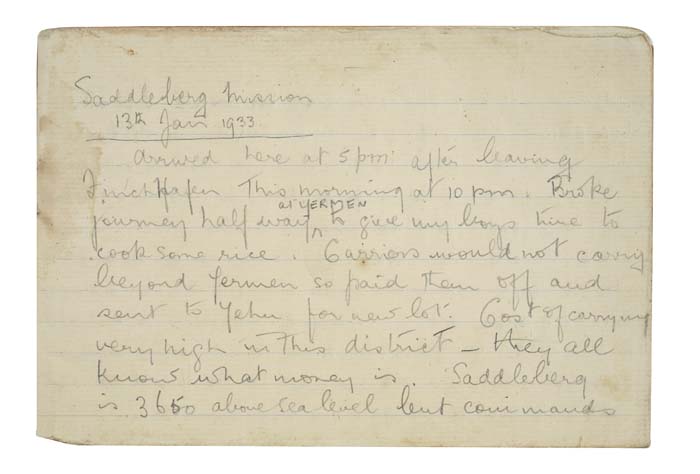 Saddleberg Mission
13th Jan 1933.
arrived here at 5 pm after leaving
Finchhafen This morning at 10 pm. Broke
at YERMEN
journey half way to give my boys time to
cook some rice. Carriers would not carry
beyond Yermen so paid them off and
sent to Yehu for new lot. Cost of carrying
very high in This district - they all
know what money is. Saddleberg
is 3650 above sea level but commands